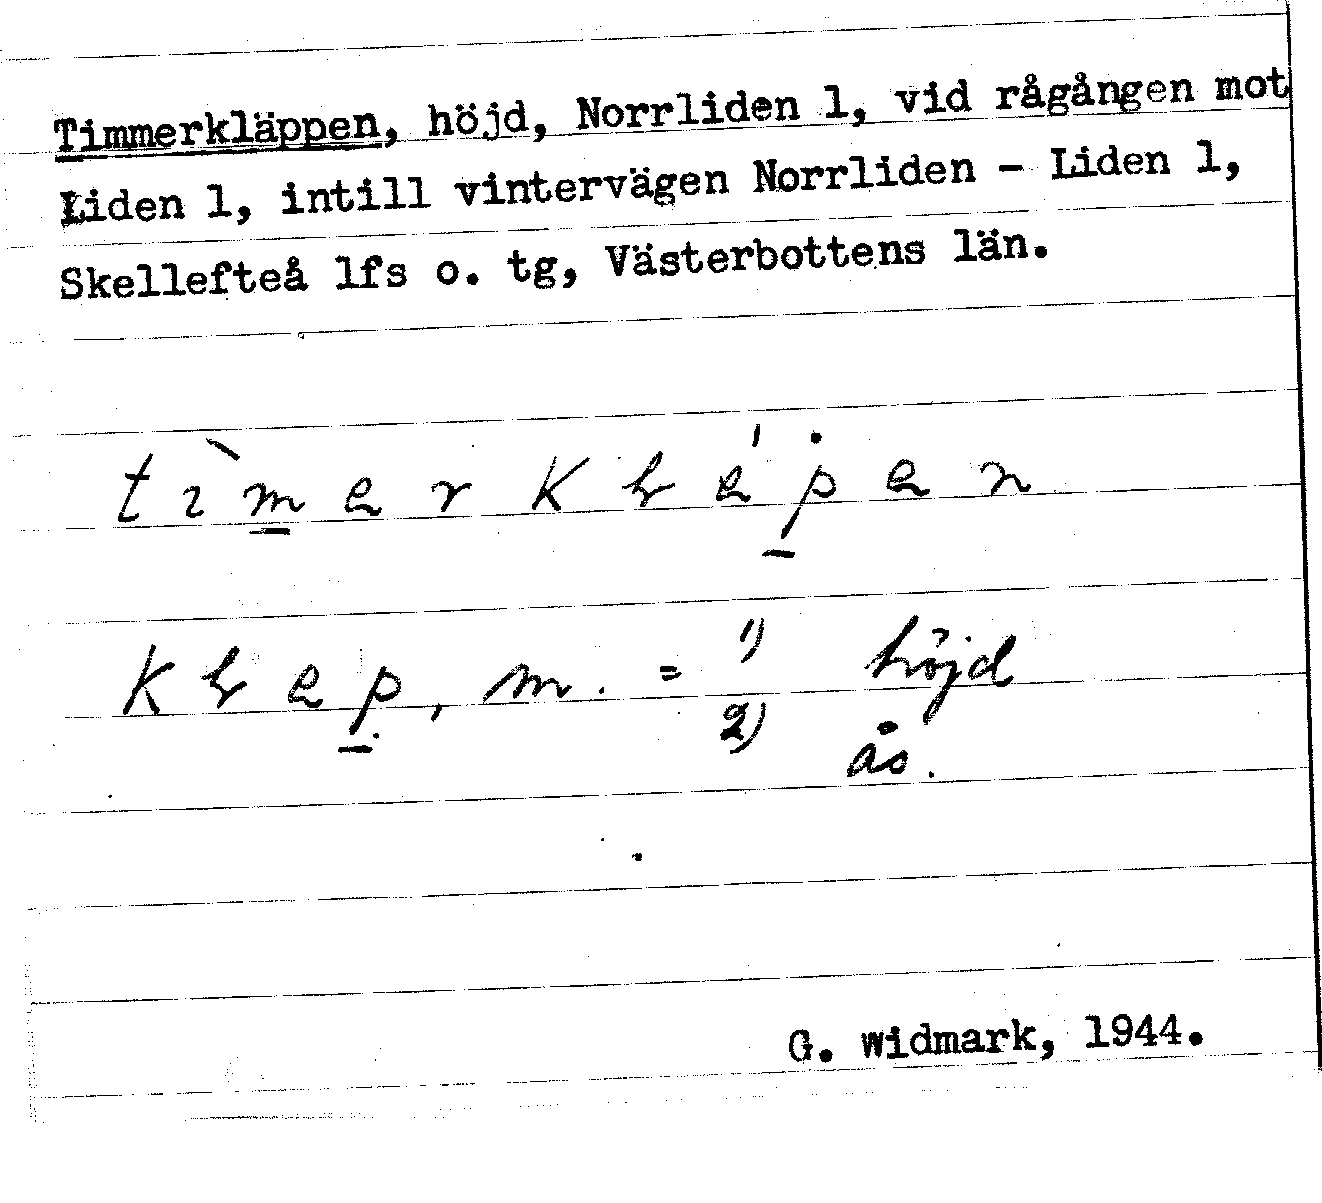 Timmerkläppen, höjd, Norrliden 1, vid rågången mot
Liden 1, intill vintervägen Norrliden - Liden 1,
Skellefteå lfs o. tg, Västerbottens län.
m. = 1) höjd
2) ås.
G. Widmark, 1944.